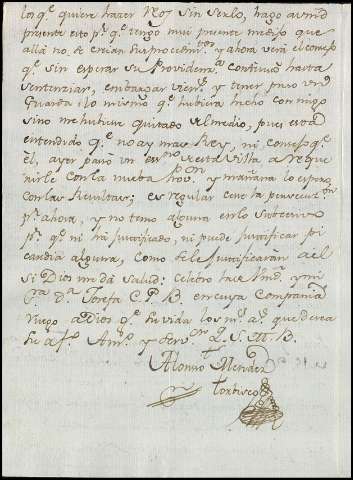 los q.e quiere hazer Reos sin serlo, hago a vmd
presente esto p.r q.e tengo mui presente me dijo que
allá no se creian sus procedim.tos y ahora será el consejo
q.e sin esperar su Providencia continuó hasta
sentenciar, embargar vien.s y tener
Guarda i lo mismo q.e hubiera hecho conmigo
sino me hubiera quitado el medio, pues está
entendido q.e no ay mas Rey, ni consejo q.e
él, ayer pasó un es.no de esta Villa a reque
rirle con la nueba Prov.on y mañana lo espero
con las Resultas; es regular cese la persecuz.on
p.r ahora, y no temo alguna en lo subcesivo
p.r q.e ni há justificado, ni puede justificar pi
cardia alguna, como se le justificarán a el
si Dios me dá salud: celebro la de Vmd. y mi
S.ra D.a Josefa C. P. B. en cuya Compania
Ruego a Dios g.e su vida los m.s a.s que desea
su af.to Am.o y Serv.or Q. S. M. B.
Alonso Mendez
Toribio